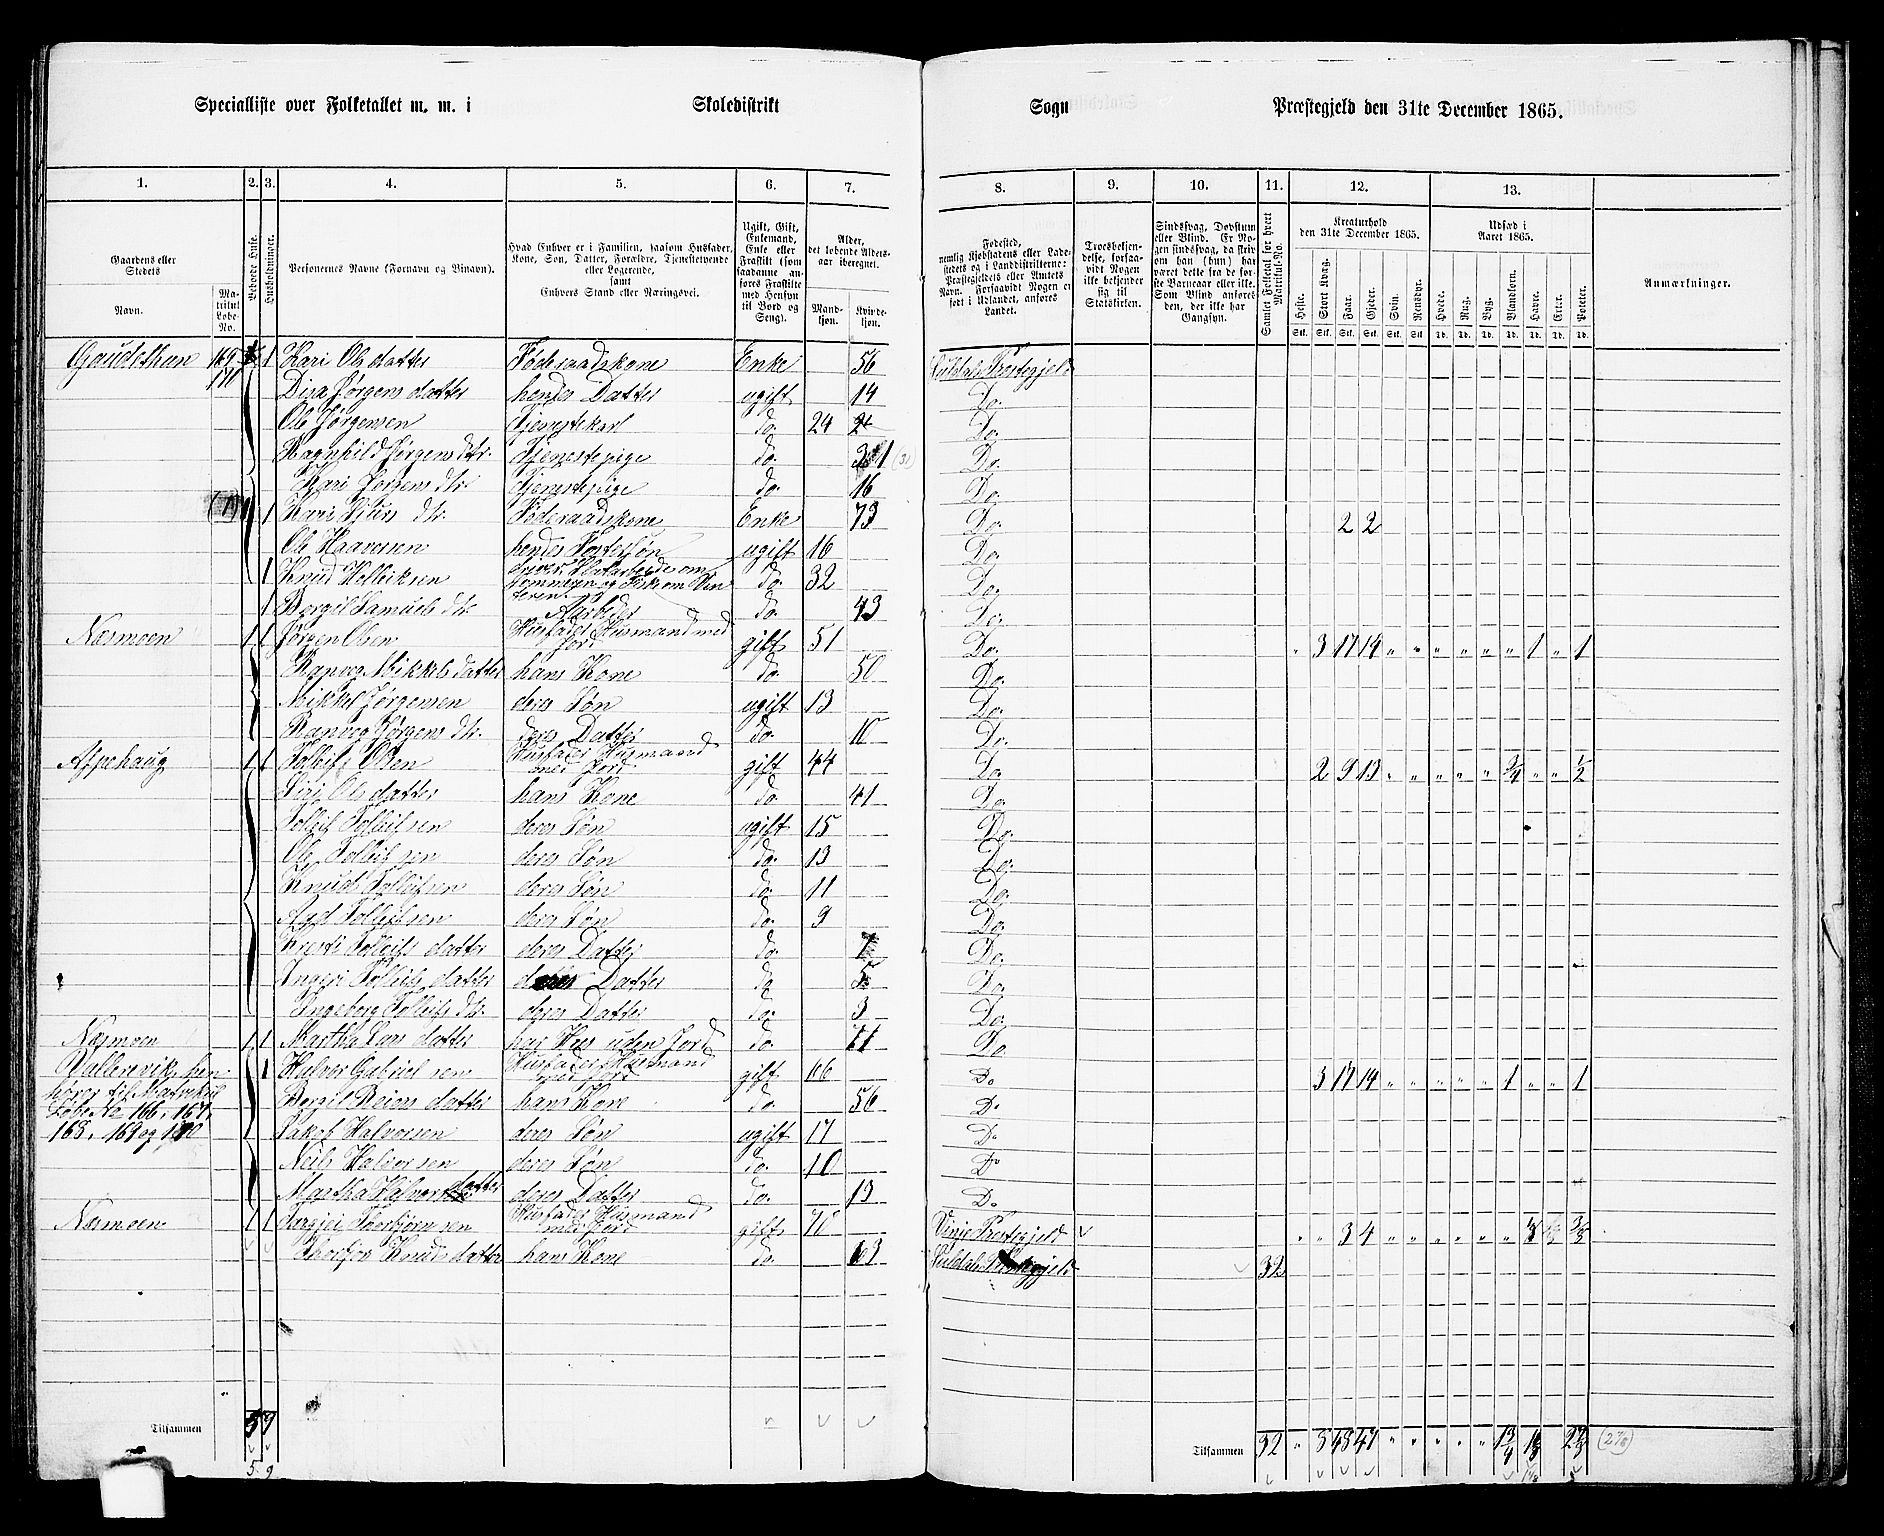 Specialliste over Folketallet m. m. i Skoledistrikt Sogn Præstegjeld den 31te December 1865.
1. 2. 3. 4. 5. 6. 7. 8. 9. 10. 11. 12. 13.
Gaardens eller Stedets
Navn.
Matrikul Løbe-No.
Bebøede Huse.
Husholdninger.
Personernes Navne (Fornavn og Binavn).
Hvad Enhver er i Familien, saasom Husfader,
Kone, Søn, Datter, Forældre, Tjenestetyende
eller Logerende,
samt
Enhvers Stand eller Næringsvei.
Ugift, Gift,
Enkemand,
Enke eller
Fraskilt (som
saadanne an-
føres Fraskilte
med Hensyn
til Bord og
Seng).
Alder,
det løbende Alders-
aar iberegnet.
Mand-
kjøn.
Kvinde-
kjøn.
Fødested,
nemlig Kjøbstadens eller Lade-
stedets og i Landdistrikterne:
Præstegjeldets eller Amtets
Navn. Forsaavidt Nogen er
født i Udlandet, anføres
Landet.
Troesbekjen-
delse, forsaa-
vidt Nogen
ikke bekjender
sig til
Statskirken.
Sindssvag, Døvstum
eller Blind. Er No-
gen sindssvag, da skriv
om han (hun) har
været dette fra de før-
ste Barneaar eller ikke.
Som Blind anføres
den, der ikke har
Gangsyn.
Samlet Folketal for hvert Matrikul-No.
Kreaturhold
den 31te December 1865.
Heste. Stort Kvæg. Faar. Gjeder. Svin. Rensdyr.
Udsæd i
Aaret 1865.
Hvede. Rug. Byg. Blandkorn. Havre. Erter. Poteter.
Anmærkninger.
Stk. Stk. Stk. Stk. Stk. Stk. Td. Td. Td. Td. Td. Td. Td.
Gaudethun 169 1 Kari Olsdatter Føderaadskone Enke 56 Suldals Præstegjeld
170 Jørgensdatter hendes Datter ugift 14 Do.
Ole Jørgensen Tjenestekarl do. 24 Do.
Ragnhild Jørgens dtr. Tjenestepige do. (31) Do.
Kari Jørgens dtr. Tjenestepige do. 16 Do.
1 Kari dtr. Føderaadskone Enke 73 Do. 2 2
Ole Haaversen hendes Fostersøn ugift 16 Do.
1 Knud do. 32 Do.
1 Bergit Samuels dtr. do. 43 Do.
Næsmoen 1 1 Jørgen Olsen Husfader Husmand med Jord gift 51 Do. " 3 17 14 " " " " " " 1 " 1
Ranveg Mikkelsdatter hans Kone do. 50 Do.
Mikkel Jørgensen deres Søn ugift 13 Do.
Ranveg Jørgens dtr. deres Datter do. 10 Do.
Aspehaug 1 1 Tolleif Olsen Husfader Husmand med Jord gift 44 Do. 2 9 13 " " " " " 3/4 " " 1/2
Siri Olsdatter hans Kone do. 41 Do.
Tolleif Tolleifsen deres Søn ugift 15 Do.
Ole Tolleifsen deres Søn do. 13 Do.
Knud Tolleifsen deres Søn do. 11 Do.
Tolleifsen deres Søn do. 9 Do.
Tolleifsdatter deres Datter do. 7 Do.
Ingeri Tolleifs datter deres Datter do. 5 Do.
Ingeborg Tolleifs dtr. deres Datter do. 3 Do.
Næsmoen 1 1 Martha Lars datter har Hus uden Jord do. 71 Do.
1 Halvor Gabrielsen Husfader Husmand med Jord gift 66 Do 3 17 14 " " " " " 1 " " 1
hører til Matrikul Bergit datter hans Kone do. 56 Do
Løbe No 166, 167, Jakob Halvorsen deres Søn ugift 17 Do
168, 169 og 170 Neils Halvorsen deres Søn do. 10 Do
Martha Halvorsdatter deres Datter do. 13 Do
Næsmoen 1 1 Torbjørnsen Husfader Husmand med Jord gift 70 Vinje Præstegjeld " " 3 4 " " " " " "
Knudsdatter hans Kone do. 63 Suldals Præstegjeld 32
Tilsammen 5 9
5 9
Tilsammen 32 " 8 48 47 " " " " "